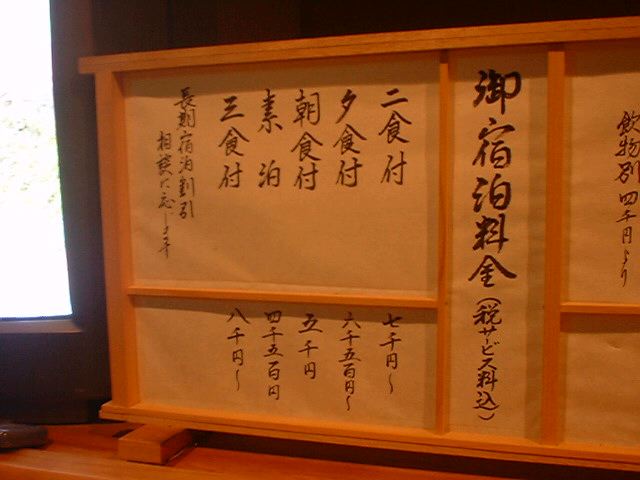 飲物別 四千円より
御宿泊料金(税サービス料込)
二食付 七千円〜
夕食付 六千五百円〜
朝食付 五千円
素泊 四千五百円
三食付 八千円〜
長期宿泊割引
相談に応じます